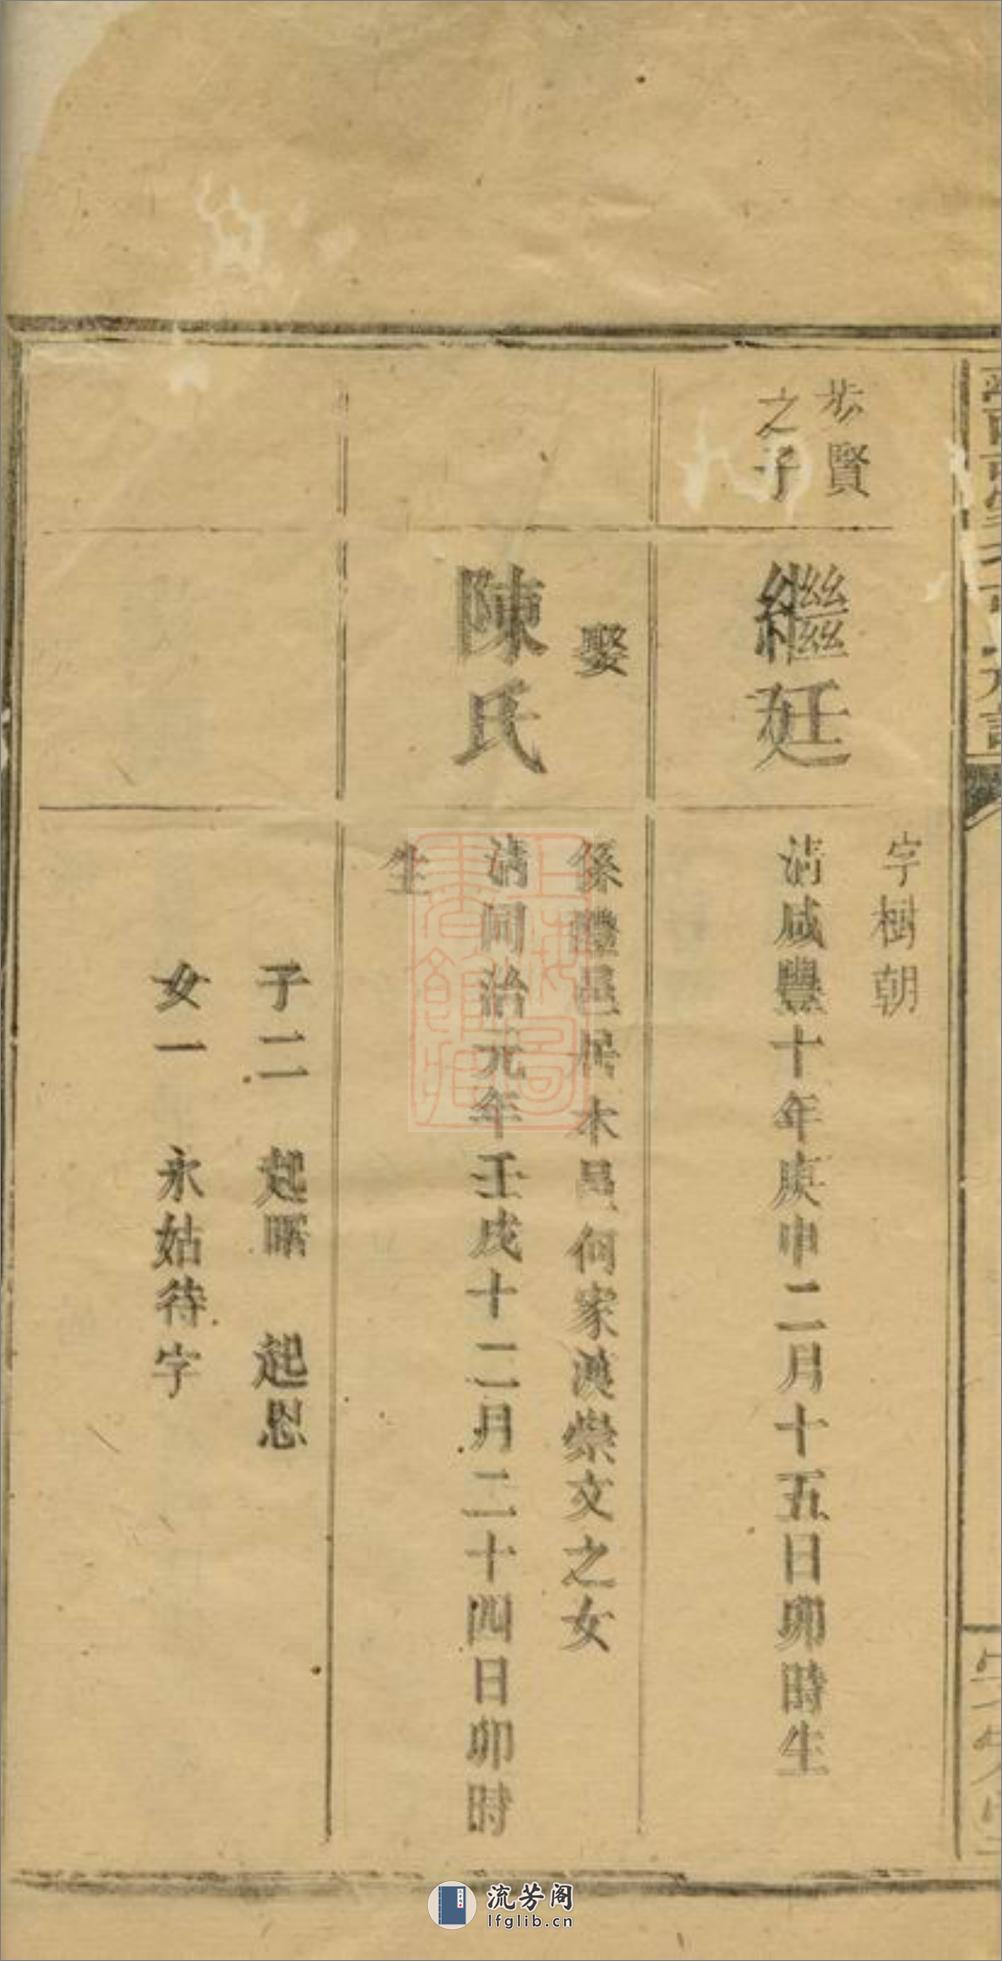 步賢
之子
繼廷
字樹朝
清咸豐十年庚申二月十五日卯時生
娶
陳氏
係醴邑居木邑何家漢崇文之女
清同治元年壬戌十二月二十四日卯時
生
子二 起曙 起恩
女一 永姑待字
上海圖書館藏
流芳阁
lfglib.cn